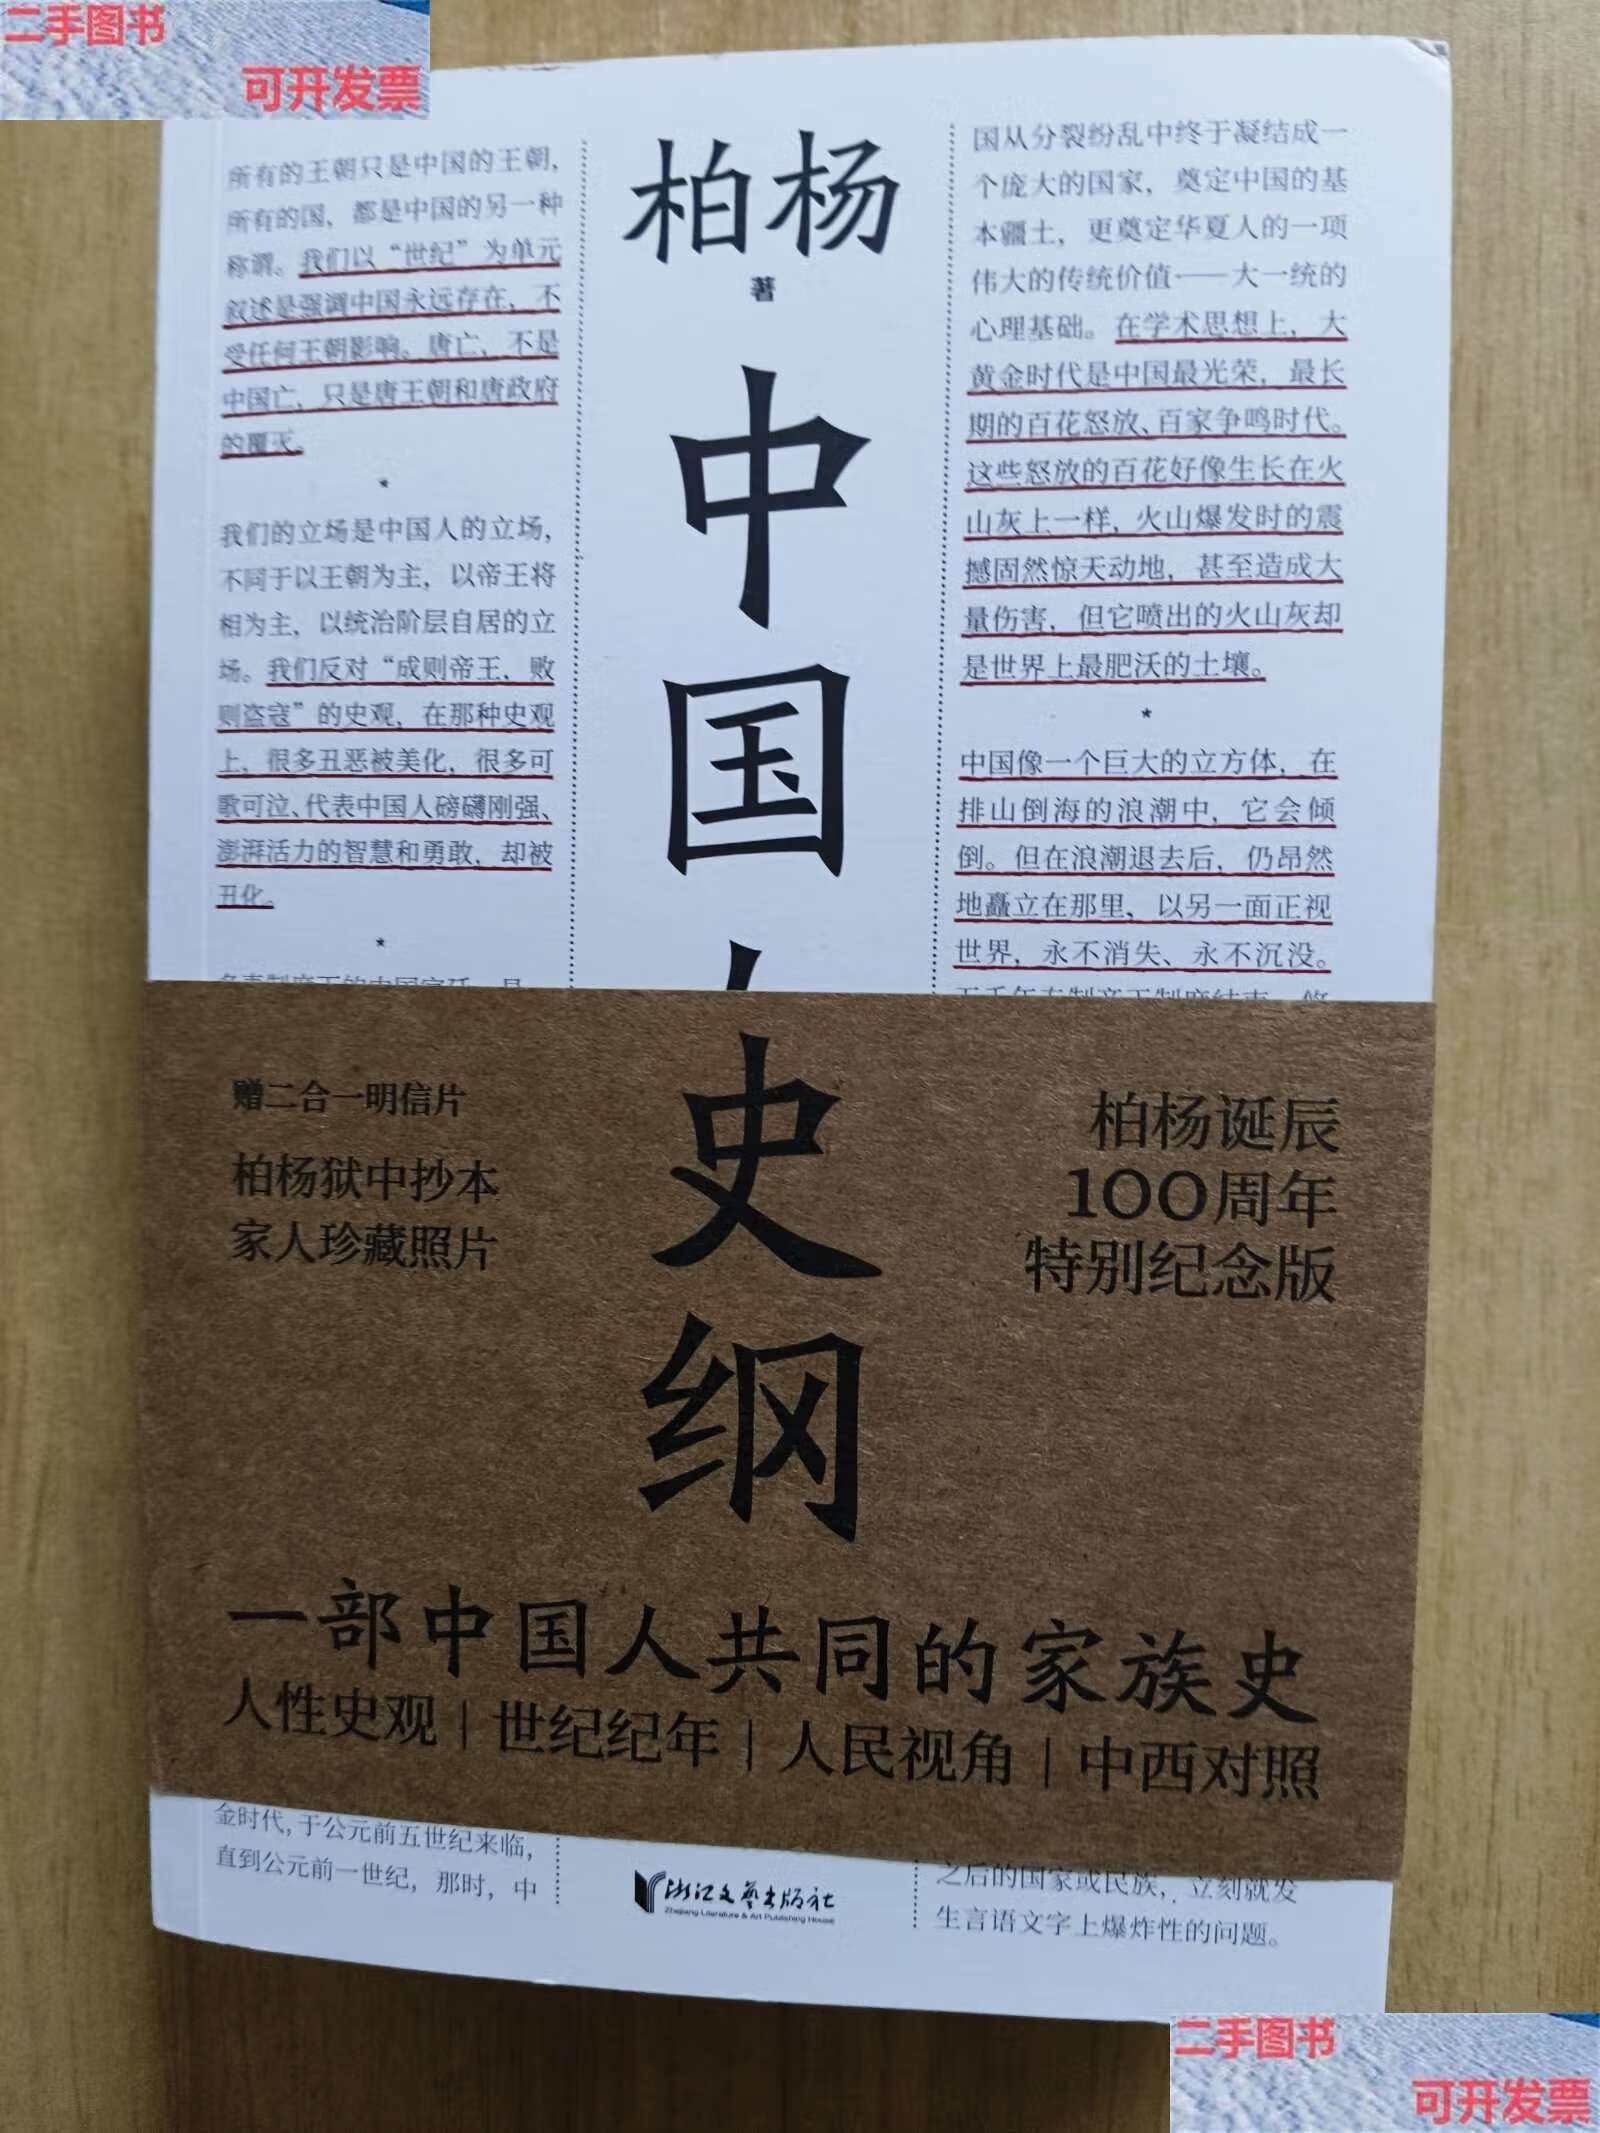 二手图书
可开发票
所有的王朝只是中国的王朝，
所有的国，都是中国的另一种
称谓。我们以“世纪”为单元
叙述是强调中国永远存在，不
受任何王朝影响。唐亡，不是
中国亡，只是唐王朝和唐政府
的覆灭。
*
我们的立场是中国人的立场，
不同于以王朝为主，以帝王将
相为主，以统治阶层自居的立
场。我们反对“成则帝王，败
则盗寇”的史观，在那种史观
上，很多丑恶被美化，很多可
歌可泣、代表中国人磅礴刚强、
澎湃活力的智慧和勇敢，却被
丑化。
*
柏杨
著
中
国
人
史
纲
国从分裂纷乱中终于凝结成一
个庞大的国家，奠定中国的基
本疆土，更奠定华夏人的一项
伟大的传统价值——大一统的
心理基础。在学术思想上，大
黄金时代是中国最光荣，最长
期的百花怒放、百家争鸣时代。
这些怒放的百花好像生长在火
山灰上一样，火山爆发时的震
撼固然惊天动地，甚至造成大
量伤害，但它喷出的火山灰却
是世界上最肥沃的土壤。
*
中国像一个巨大的立方体，在
排山倒海的浪潮中，它会倾
倒。但在浪潮退去后，仍昂然
地矗立在那里，以另一面正视
世界，永不消失、永不沉没。
赠二合一明信片
柏杨狱中抄本
家人珍藏照片
柏杨诞辰
100周年
特别纪念版
一部中国人共同的家族史
人性史观|世纪纪年|人民视角|中西对照
金时代，于公元前五世纪来临，
直到公元前一世纪，那时，中
浙江文艺出版社
Zhejiang Literature & Art Publishing House
之后的国家或民族，立刻就发
生言语文字上爆炸性的问题。
二手图书
可开发票